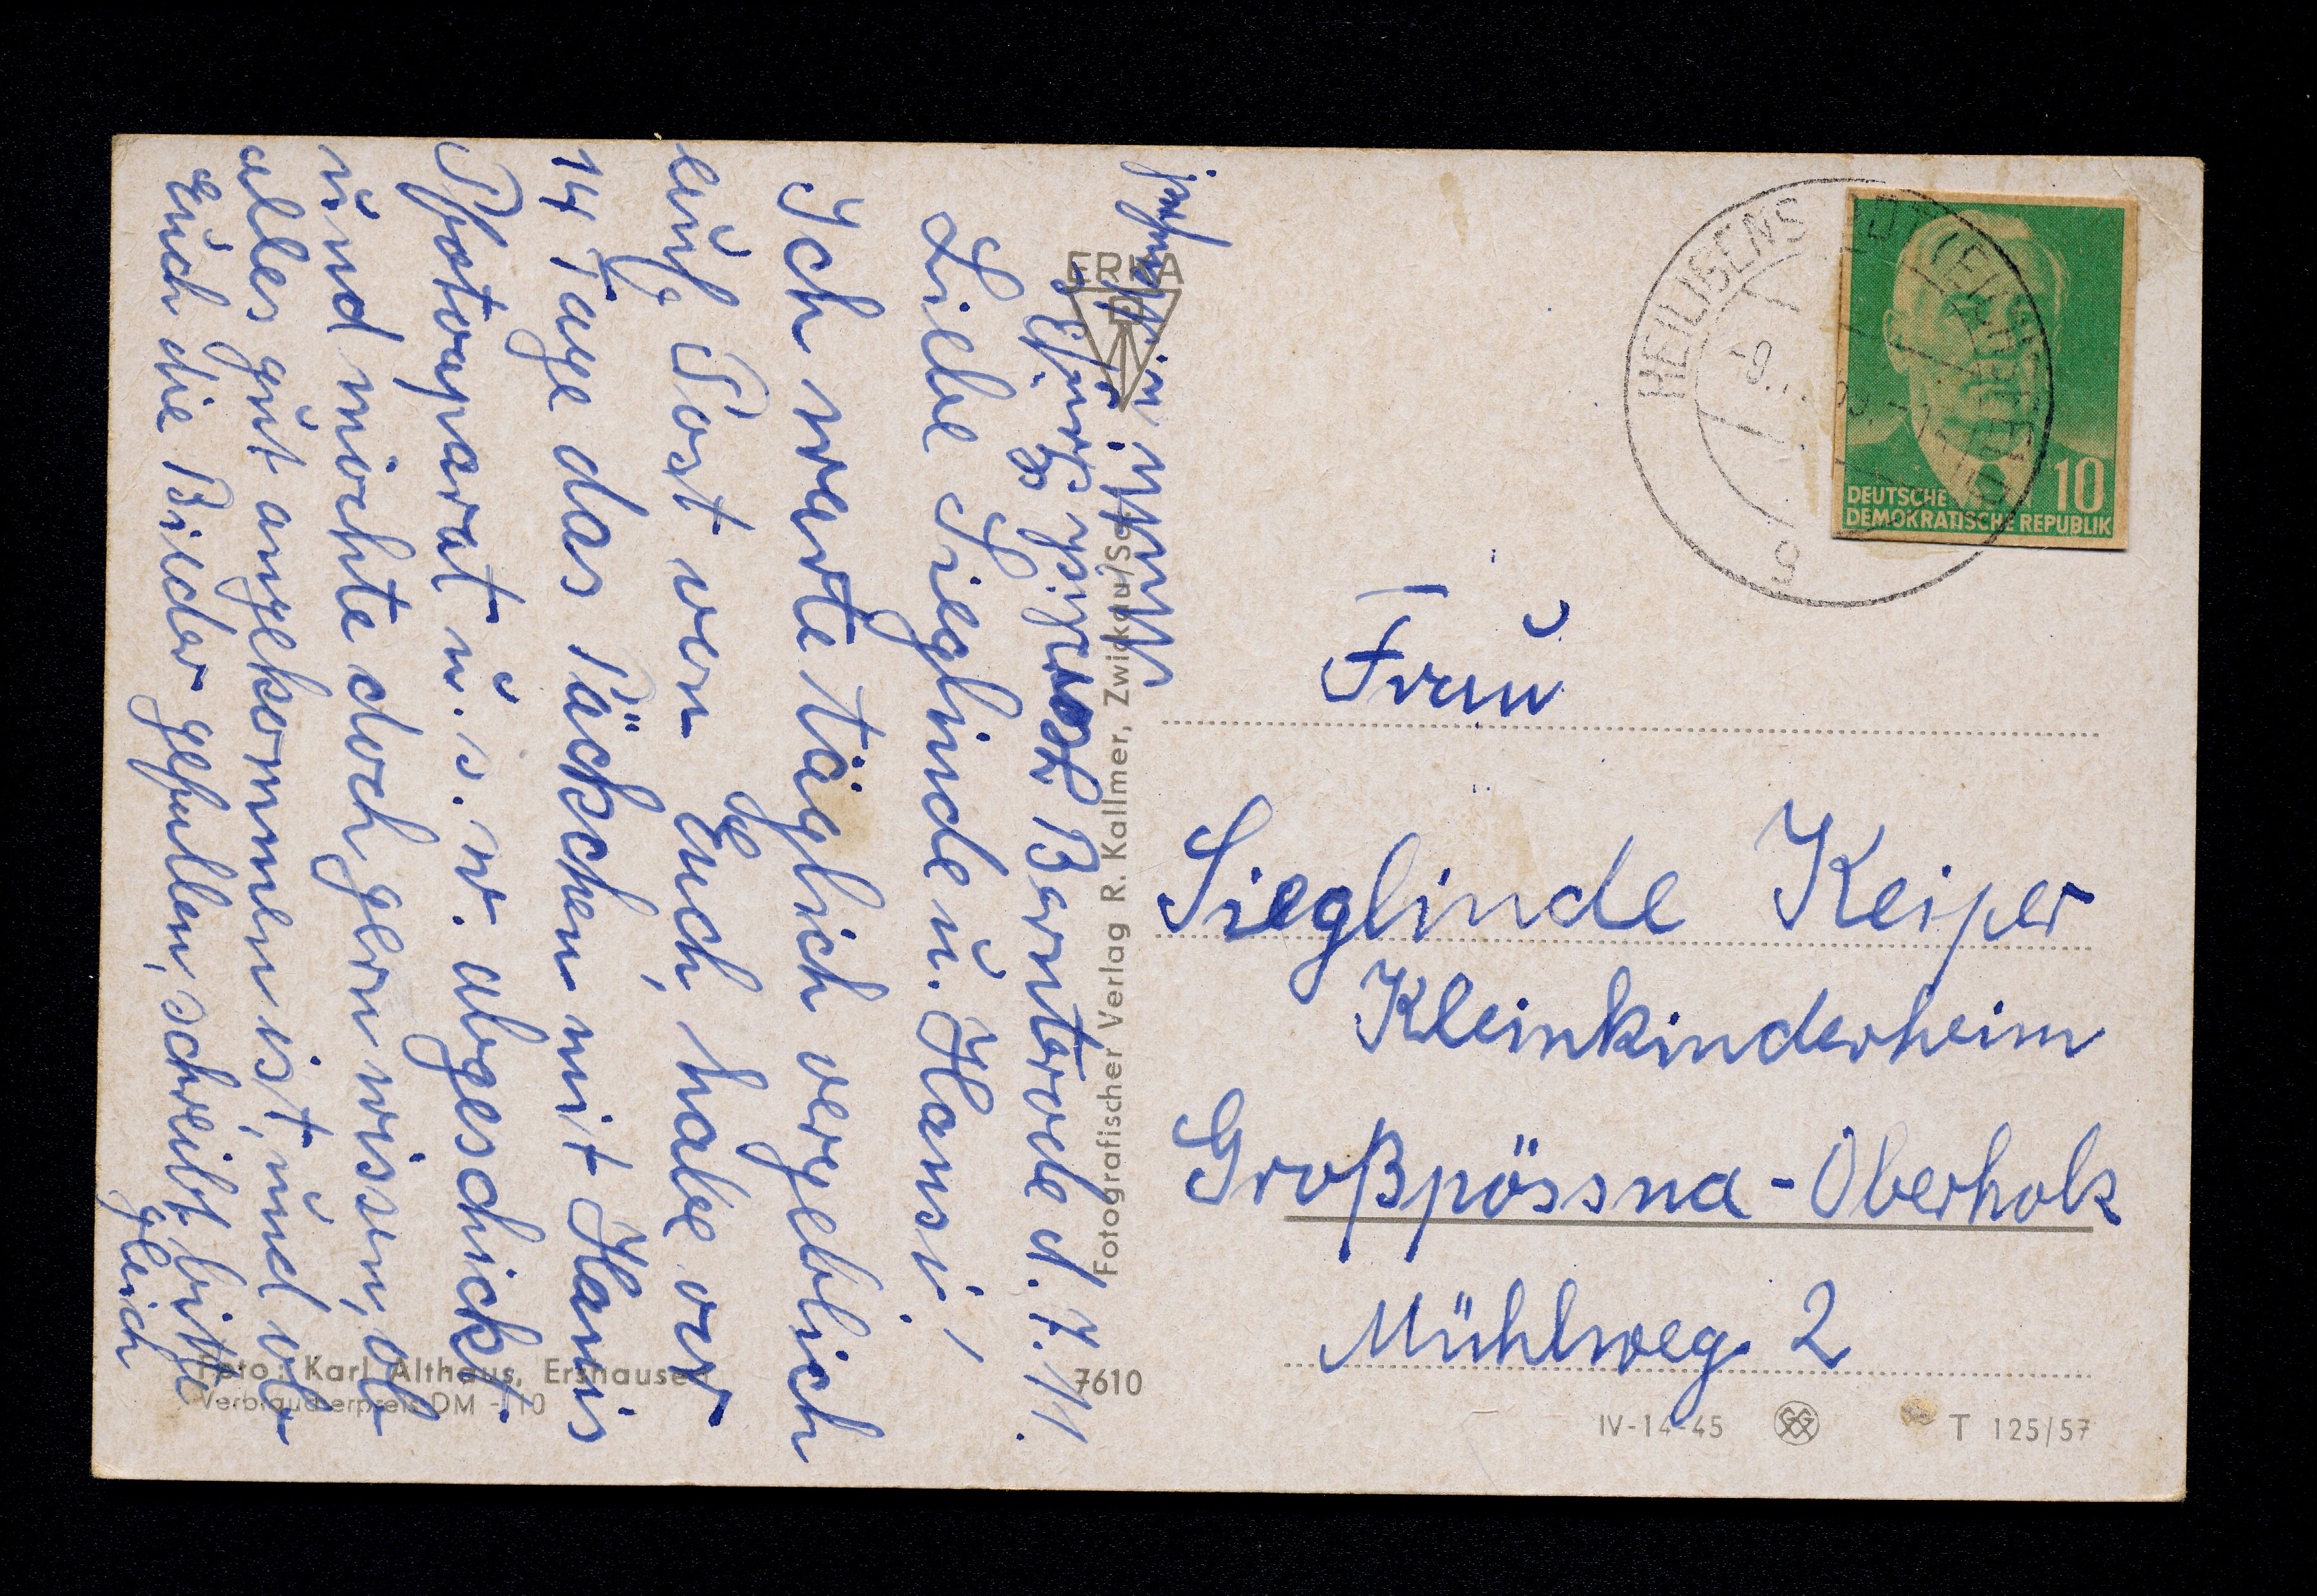 Bernterode d. 7.11.
Liebe Sieglinde u. Hansi!
Ich warte täglich vergeblich
auf Post von Euch, habe vor
14 Tage das Päckchen mit Hansis
Photoaparat u.s.w. abgeschickt.
und möchte doch gern wissen, ob
alles gut angekommen ist, und ob
Euch die Bilder gefallen, schreibt bitte
gleich
Herzliche Grüße
Mutti
HEILIGENSTADT (EICHSFELD)
DEUTSCHE
DEMOKRATISCHE REPUBLIK
10
Frau
Sieglinde Keiper
Kleinkinderheim
Großpössna-Oberholz
Mühlweg 2
Fotografischer Verlag R. Kallmer, Zwickau/Sa.
Foto: Karl Althaus, Ershausen
Verbraucherpreis DM -,10
7610
IV-14-45
T 125/57